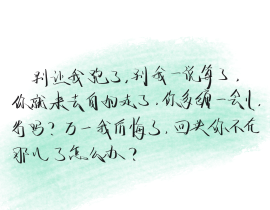 别让我说了,别我一说算了,
你就来去自如走了,你多缠一会儿
有吗?万一我后悔了,回头你不在
那儿了怎么办?